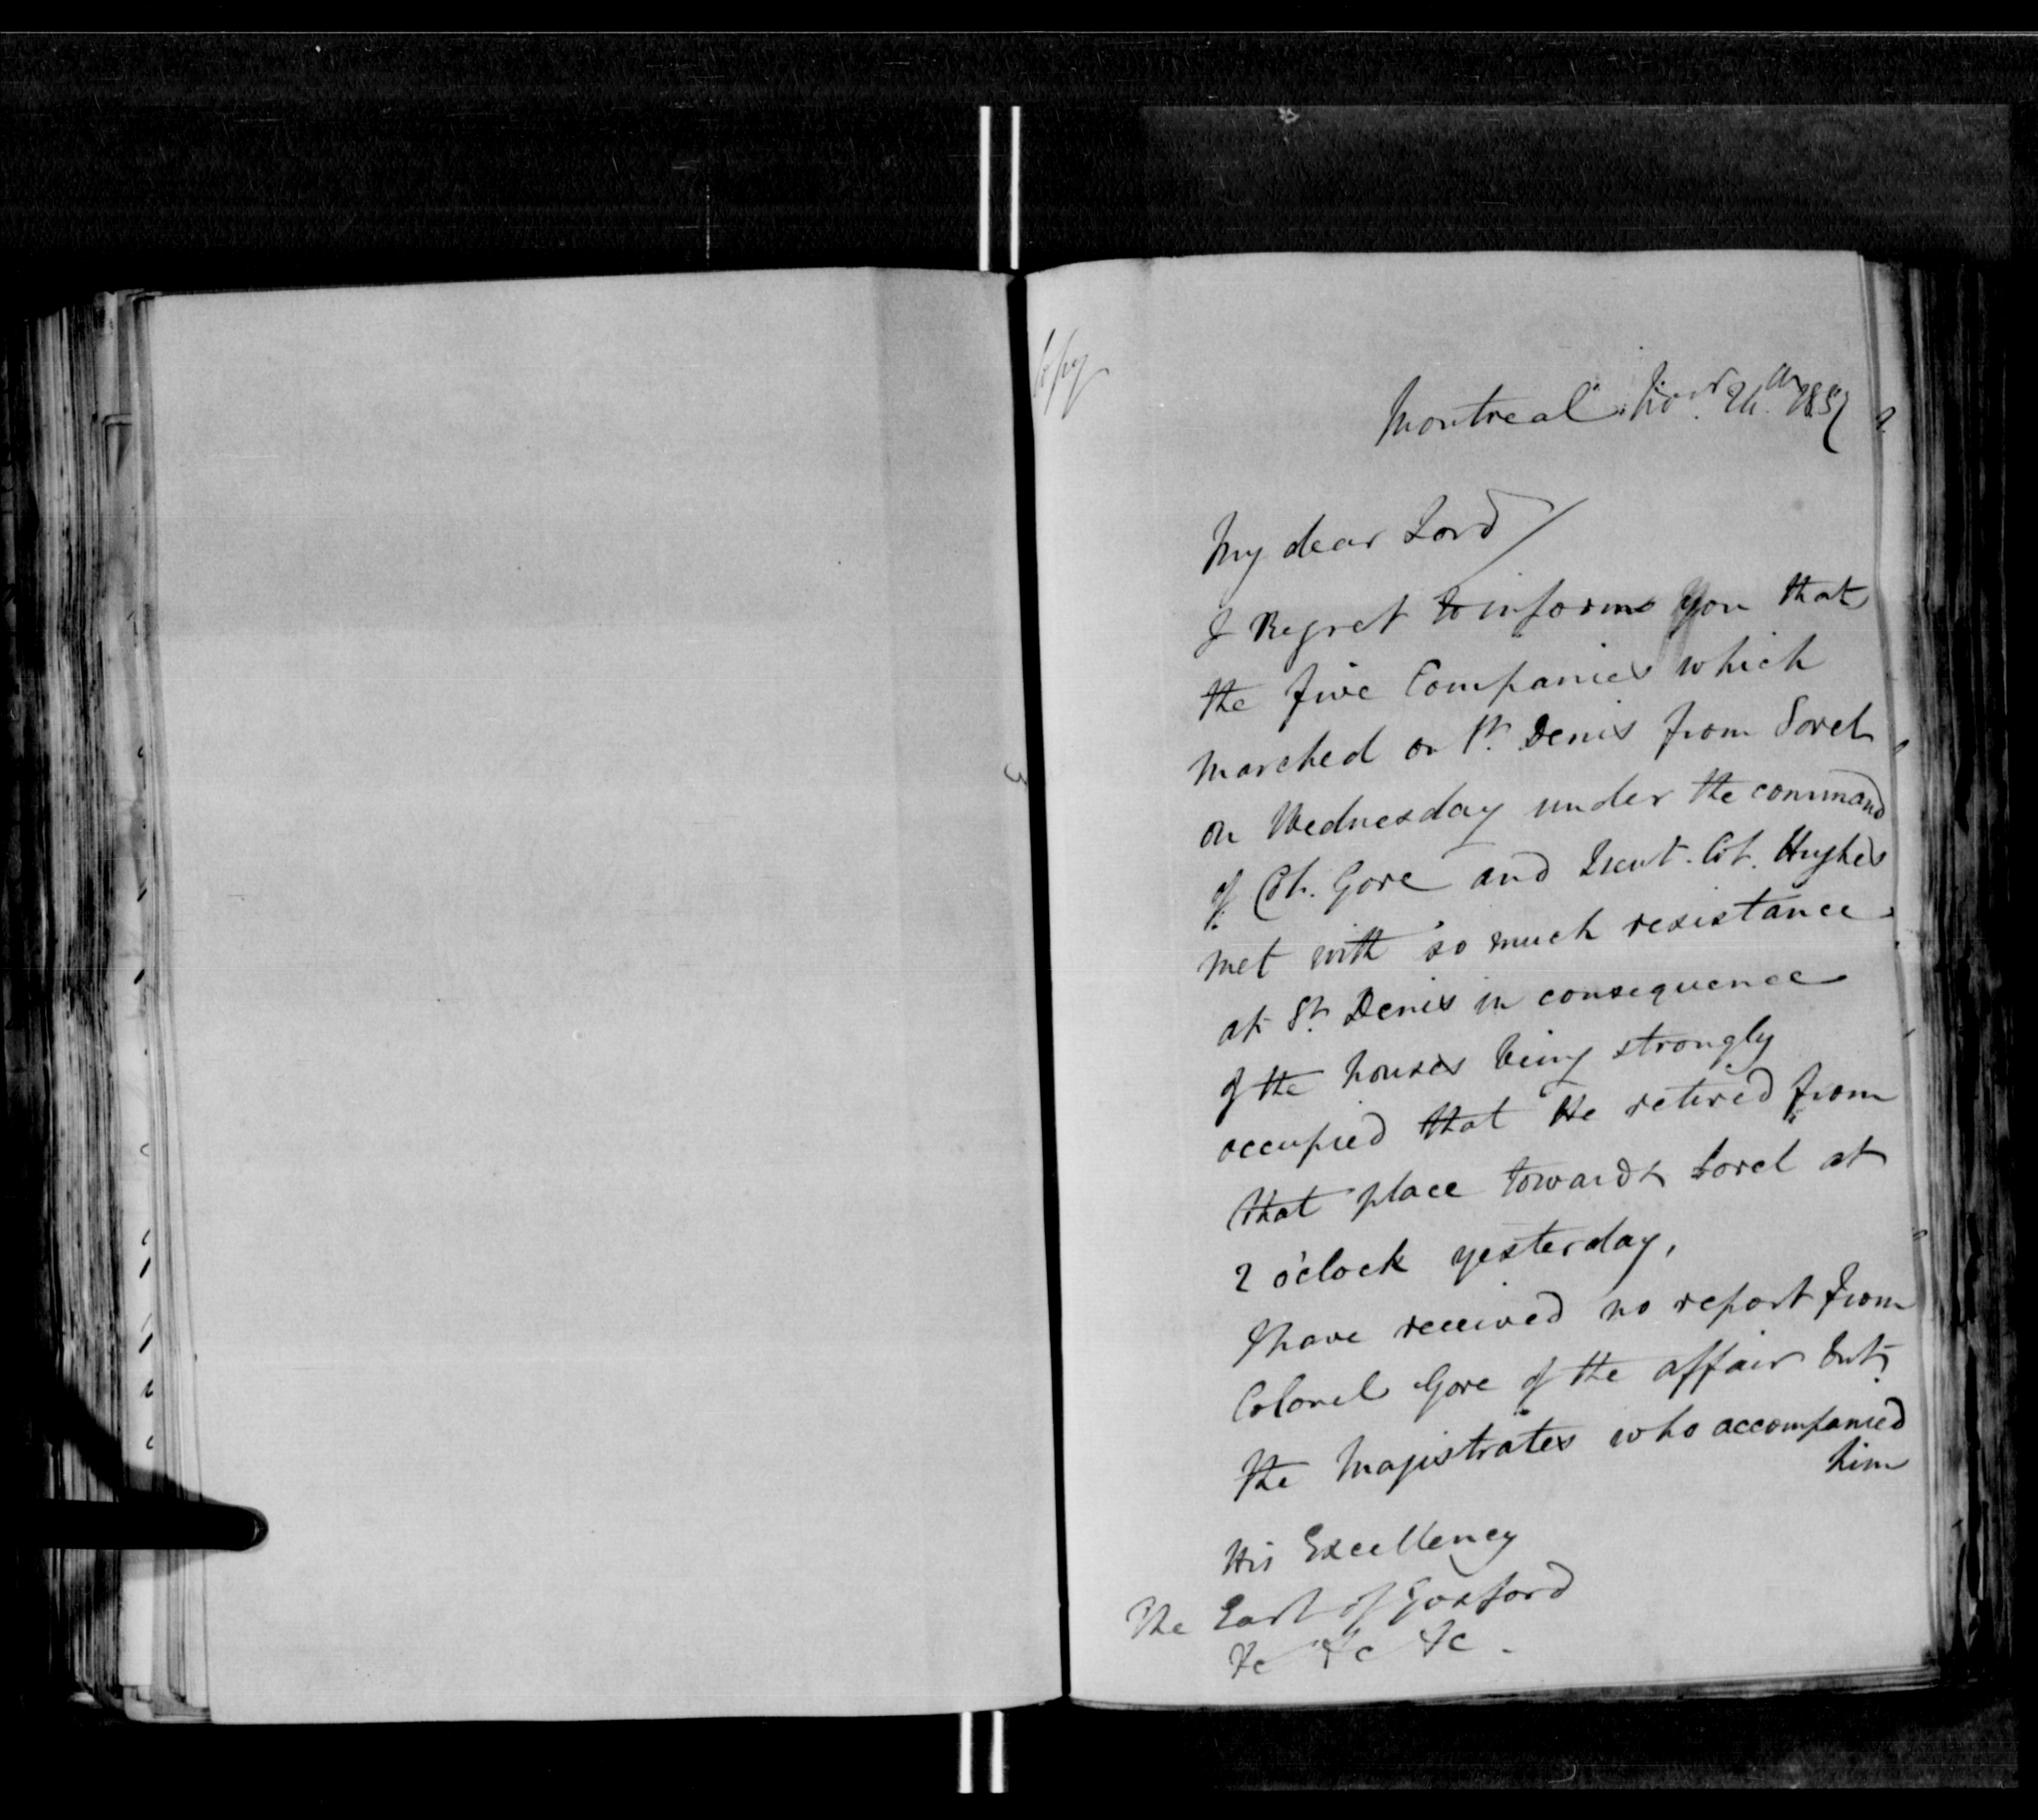 Copy
Montreal Novr. 24th 1837
My dear Lord /
I Regret to inform You that
the five Companies which
Marched on St. Denis from Sorel
on Wednesday under the command
of Col. Gore and Lieut. Col. Hughes
met with so much resistance
at St. Denis in consequence
of the houses being strongly
occupied that He retired from
that place towards Sorel at
2 o'clock yesterday,
I have received no report from
Colonel Gore of the affair but
the Magistrates who accompanied
him
His Excellency
The Earl of Gosford
&c &c &c -